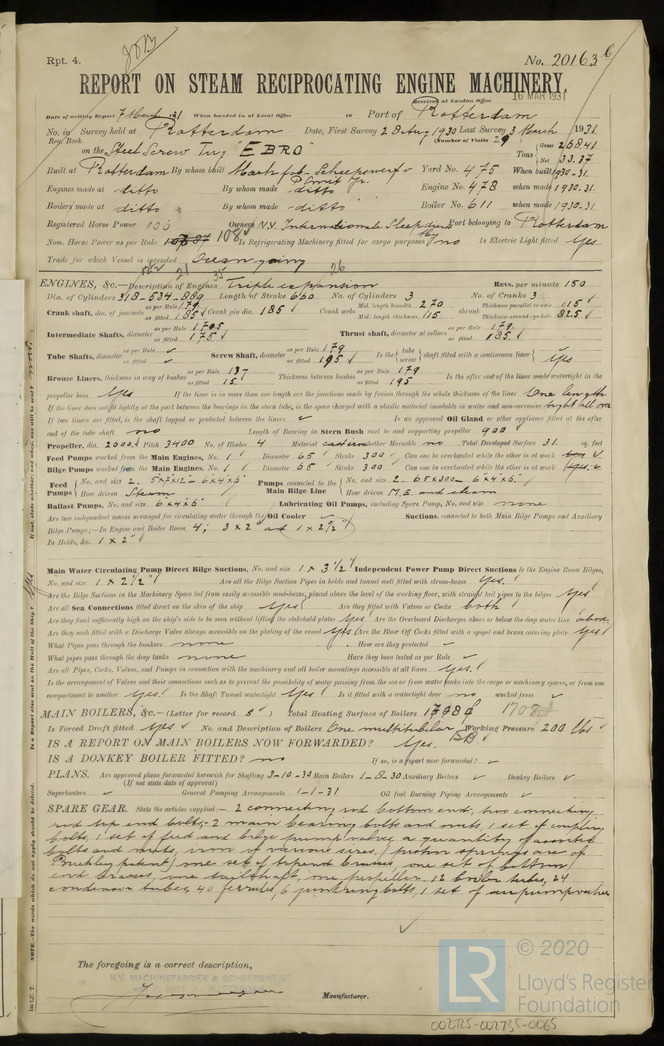 Rpt. 4.
No. 20163
REPORT ON STEAM RECIPROCATING ENGINE MACHINERY.
Received at London Office
16 MAR 1931
Date of writing Report 7 March 1931 When handed in at Local Office 19 Port of Rotterdam
No. in Survey held at Rotterdam Date, First Survey 28 Aug 1930 Last Survey 3 March 1931
Reg. Book. (Number of Visits 29
on the Steel Screw Tug "EBRO" Tons Gross 258.41
Net 33.37
Built at Rotterdam By whom built Machfab. Scheepswerf v P. Smit Jr. Yard No. 475 When built 1930-31
Engines made at ditto By whom made ditto Engine No. 478 when made 1930-31
Boilers made at ditto By whom made ditto Boiler No. 611 when made 1930-31
Registered Horse Power Owners N.V. Internationale Sleepdienst Port belonging to Rotterdam
Nom. Horse Power as per Rule 108 Is Refrigerating Machinery fitted for cargo purposes no Is Electric Light fitted Yes
Trade for which Vessel is intended Ocean going
ENGINES, &c.—Description of Engines Triple expansion Revs. per minute 150
Dia. of Cylinders 318-534-889 Length of Stroke 660 No. of Cylinders 3 No. of Cranks 3
Crank shaft, dia. of journals as per Rule 179 as fitted 185 Crank pin dia. 185 Crank webs Mid. length breadth 270 Mid. length thickness 115 shrunk Thickness parallel to axis 115 Thickness around eye-hole 82.5
Intermediate Shafts, diameter as per Rule 170.5 as fitted 175 Thrust shaft, diameter at collars as per Rule 179 as fitted 185
Tube Shafts, diameter as per Rule as fitted Screw Shaft, diameter as per Rule 179 as fitted 195 Is the tube screw shaft fitted with a continuous liner Yes
Bronze Liners, thickness in way of bushes as per Rule 137 as fitted 15 Thickness between bushes as per Rule 179 as fitted 195 Is the after end of the liner made watertight in the
propeller boss Yes If the liner is in more than one length are the junctions made by fusion through the whole thickness of the liner One length
If the liner does not fit tightly at the part between the bearings in the stern tube, is the space charged with a plastic material insoluble in water and non-corrosive tight all over
If two liners are fitted, is the shaft lapped or protected between the liners ✓ Is an approved Oil Gland or other appliance fitted at the after
end of the tube shaft no Length of Bearing in Stern Bush next to and supporting propeller 900
Propeller, dia. 2600 Pitch 3400 No. of Blades 4 Material whether Moveable no Total Developed Surface 31 sq. feet
Feed Pumps worked from the Main Engines, No. 1 Diameter 65 Stroke 300 Can one be overhauled while the other is at work
Bilge Pumps worked from the Main Engines, No. 1 Diameter 65 Stroke 300 Can one be overhauled while the other is at work
Feed Pumps No. and size 2. 5x7x12 - 6x4x6 How driven Steam Pumps connected to the Main Bilge Line No. and size 2. 65x300 - 6x4x6 How driven M.E. and steam
Ballast Pumps, No. and size 6x4x6 Lubricating Oil Pumps, including Spare Pump, No. and size none
Are two independent means arranged for circulating water through the Oil Cooler Suctions, connected to both Main Bilge Pumps and Auxiliary
Bilge Pumps;—In Engine and Boiler Room 4; 3 x 2" at 1 x 2 1/2"
In Holds, &c. 1 x 2"
Main Water Circulating Pump Direct Bilge Suctions, No. and size 1 x 3 1/2" Independent Power Pump Direct Suctions to the Engine Room Bilges,
No. and size 1 x 2 1/2" Are all the Bilge Suction Pipes in holds and tunnel well fitted with strum-boxes Yes.
Are the Bilge Suctions in the Machinery Space led from easily accessible mud-boxes, placed above the level of the working floor, with straight tail pipes to the bilges Yes
Are all Sea Connections fitted direct on the skin of the ship Yes Are they fitted with Valves or Cocks both
Are they fixed sufficiently high on the ship's side to be seen without lifting the stokehold plates Yes Are the Overboard Discharges above or below the deep water line above
Are they each fitted with a Discharge Valve always accessible on the plating of the vessel Yes Are the Blow Off Cocks fitted with a spigot and brass covering plate Yes
What Pipes pass through the bunkers none How are they protected ✓
What pipes pass through the deep tanks none Have they been tested as per Rule ✓
Are all Pipes, Cocks, Valves, and Pumps in connection with the machinery and all boiler mountings accessible at all times Yes.
Is the arrangement of Valves and their connections such as to prevent the possibility of water passing from the sea or from water tanks into the cargo or machinery spaces, or from one
compartment to another Yes Is the Shaft Tunnel watertight Yes Is it fitted with a watertight door no worked from ✓
MAIN BOILERS, &c.—(Letter for record S) Total Heating Surface of Boilers 1708
Is Forced Draft fitted Yes No. and Description of Boilers One multitubular SB Working Pressure 200 lbs
IS A REPORT ON MAIN BOILERS NOW FORWARDED? Yes.
IS A DONKEY BOILER FITTED? no If so, is a report now forwarded? ✓
PLANS. Are approved plans forwarded herewith for Shafting 3-10-30 Main Boilers 1-8-30 Auxiliary Boilers ✓ Donkey Boilers ✓
(If not state date of approval)
Superheaters ✓ General Pumping Arrangements 1-1-31 Oil fuel Burning Piping Arrangements ✓
SPARE GEAR. State the articles supplied:— 2 connecting rod bottom end, two connecting
rod top end bolts, 2 main bearing bolts and nuts, 1 set of coupling
bolts, 1 set of feed and bilge pump valves, a quantity of assorted
bolts and nuts, iron of various sizes, (piston springs are of
Buckley patent) one set of top end brasses one set of bottom
end brasses, one tailshaft, one propeller, 12 boiler tubes, 24
condenser tubes, 40 ferrules, 6 junkring bolts, 1 set of airpump valves
The foregoing is a correct description,
N.V. MACHINEFABRIEK & SCHEEPSWERF
Manufacturer.
© 2020
LR
Lloyd's Register
Foundation
002725-002735-0065